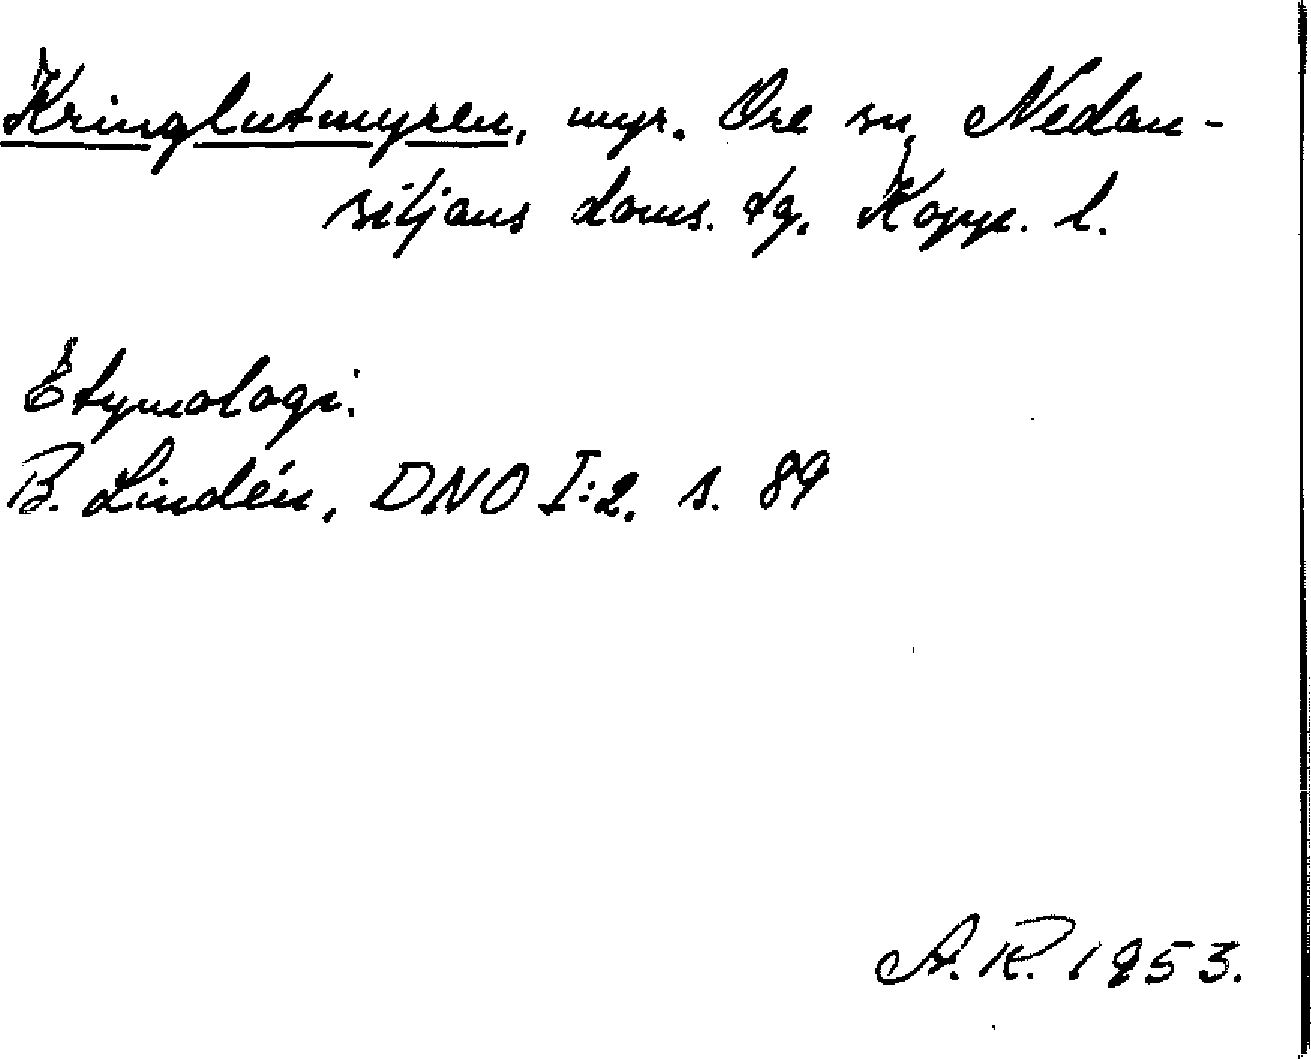 Kringlutmyren, myr. Ore sn, Nedan-
siljans doms. tg. Kopp. l.
Etymologi:
B. Lindén, DNO I:2, s. 89
A.R. 1953.